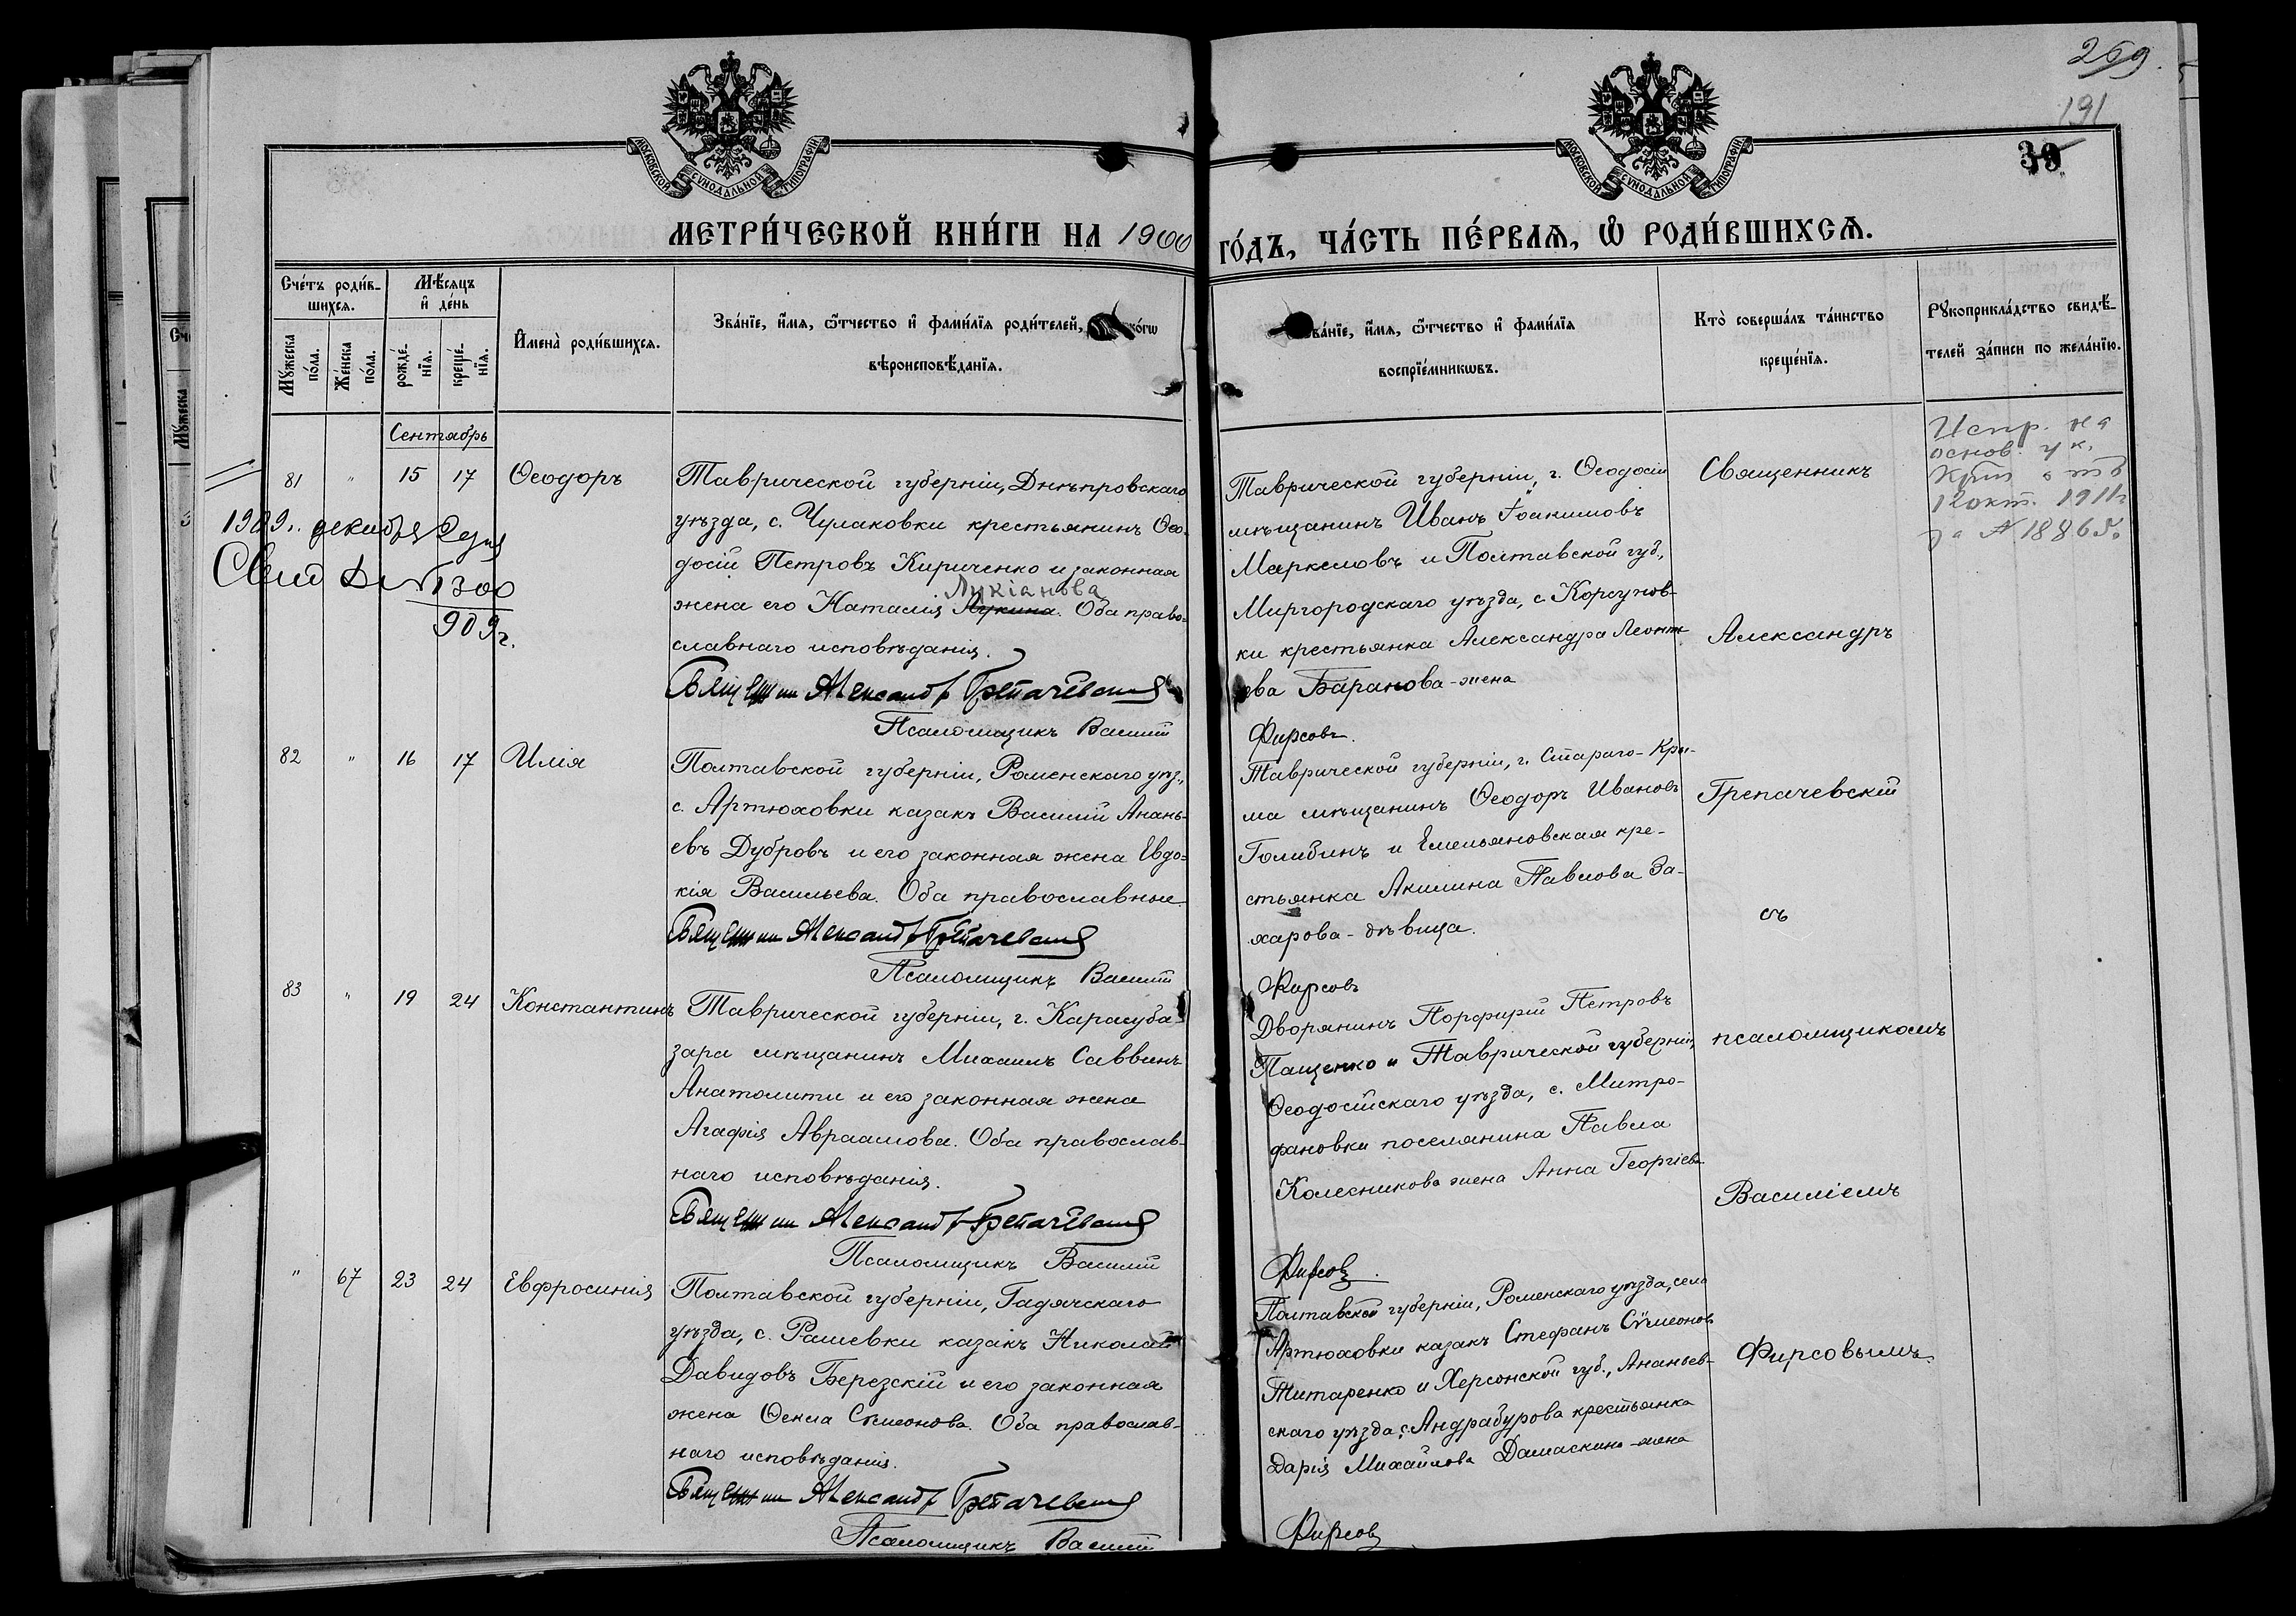 269.
191
39
МОСКОВСКОЙ СѴНОДАЛЬНОЙ ТИПОГРАФІИ
МОСКОВСКОЙ СѴНОДАЛЬНОЙ ТИПОГРАФІИ
МЕТРИ́ЧЕСКОЙ КНИ́ГИ НА 1900
ГО́ДЪ, ЧА́СТЬ ПЕ́РВАѦ, Ѡ҆ РОДИ́ВШИХСѦ.
Сче́тъ роди́в-
шихсѧ.
Мꙋ́жеска по́ла.
Же́нска по́ла.
Мѣ́сѧцъ
и҆ де́нь
рожде́-нїѧ.
креще́-нїѧ.
И҆мена̀ роди́вшихсѧ.
Зва́нїе, и҆́мѧ, ѻ҆́тчество и҆ фамн́лїѧ роди́телей,
вѣроисповѣ́данїѧ.
ва́нїе, и҆́мѧ, ѻ҆́тчество и҆ фами́лїѧ
воспрїе́мникωвъ.
Кто̀ соверша́лъ та́инство
креще́нїѧ.
Рꙋкоприкла́дство свидѣ́-
телей за́писи по жела́нїю.
Сентябрь
81 " 15 17 Ѳеодоръ
Таврической губерніи, Днѣпровскаго
уѣзда, с. Чулаковки крестьянинъ Ѳео-
досій Петровъ Кириченко и законная
Лукіанова
жена его Наталія Лукина. Оба право-
славнаго исповѣданія.
Священник Александр Грепачевский
Псаломщикъ Василій
1909г. декабря 2 дня
Свид 1300
909г.
Таврической губерніи, г. Ѳеодосіи
мѣщанинъ Иванъ Іоакимовъ
Маркеловъ и Полтавской губ.,
Миргородскаго уѣзда, с. Корсунов-
ки крестьянка Александра Леонть
ева Баранова - жена
Фирсовъ.
Священникъ
Александръ
Грепачевскій
съ
псаломщикомъ
Василіемъ
Фирсовымъ.
Испр. на
основ. ук.
12 окт. 1911г
за № 18865.
82 " 16 17 Илія
Полтавской губерніи, Роменскаго уѣз.,
с. Артюховки казакъ Василій Анань-
евъ Дубровъ и его законная жена Евдо-
кія Васильева. Оба православные
Священник Александр Грепачевский
Псаломщикъ Василій
Таврической губерніи, г. Стараго-Кры-
ма мѣщанинъ Ѳеодоръ Ивановъ
Голибинъ и Емельяновская кре-
стьянка Акилина Павлова За-
харова - дѣвица.
Фирсовъ
83 " 19 24 Константинъ
Таврической губерніи, г. Карасуба-
зара мѣщанинъ Михаилъ Саввинъ
Анатолити и его законная жена
Агафія Авраамова. Оба православ-
наго исповѣданія.
Священник Александр Грепачевский
Псаломщикъ Василій
Дворянинъ Порфирій Петровъ
Пащенко и Таврической губерніи,
Ѳеодосійскаго уѣзда, с. Митро-
фановки поселянина Павла
Колесникова жена Анна Георгіева
Фирсовъ.
" 67 23 24 Евфросинія
Полтавской губерніи, Гадячскаго
уѣзда, с. Рашевки казакъ Николай
Давидовъ Березскій и его законная
жена Ѳекла Сѵмеонова. Оба православ-
наго исповѣданія.
Священник Александр Грепачевский
Псаломщикъ Василій
Полтавской губерніи, Роменскаго уѣзда, села
Артюховки казакъ Стефанъ Сѵмеоновъ
Титаренко и Херсонской губ., Ананьев-
скаго уѣзда, с. Андрабурова крестьянка
Дарія Михайлова Дамаскина - жена
Фирсовъ